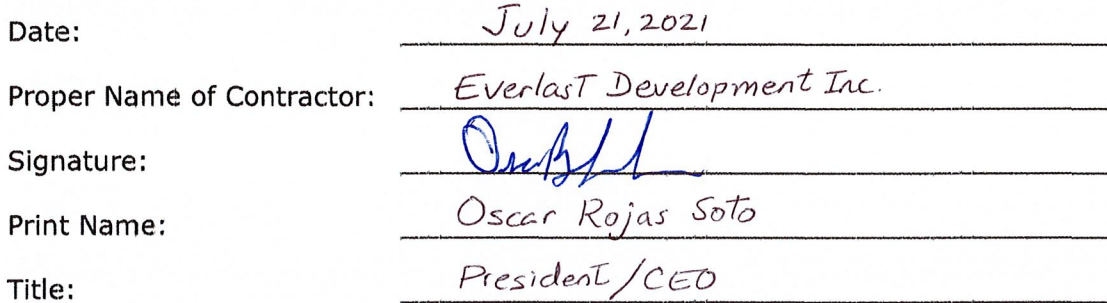 Date: July 21, 2021
Proper Name of Contractor: EverlasT Development Inc.
Signature:
Print Name: Oscar Rojas Soto
Title: President/CEO